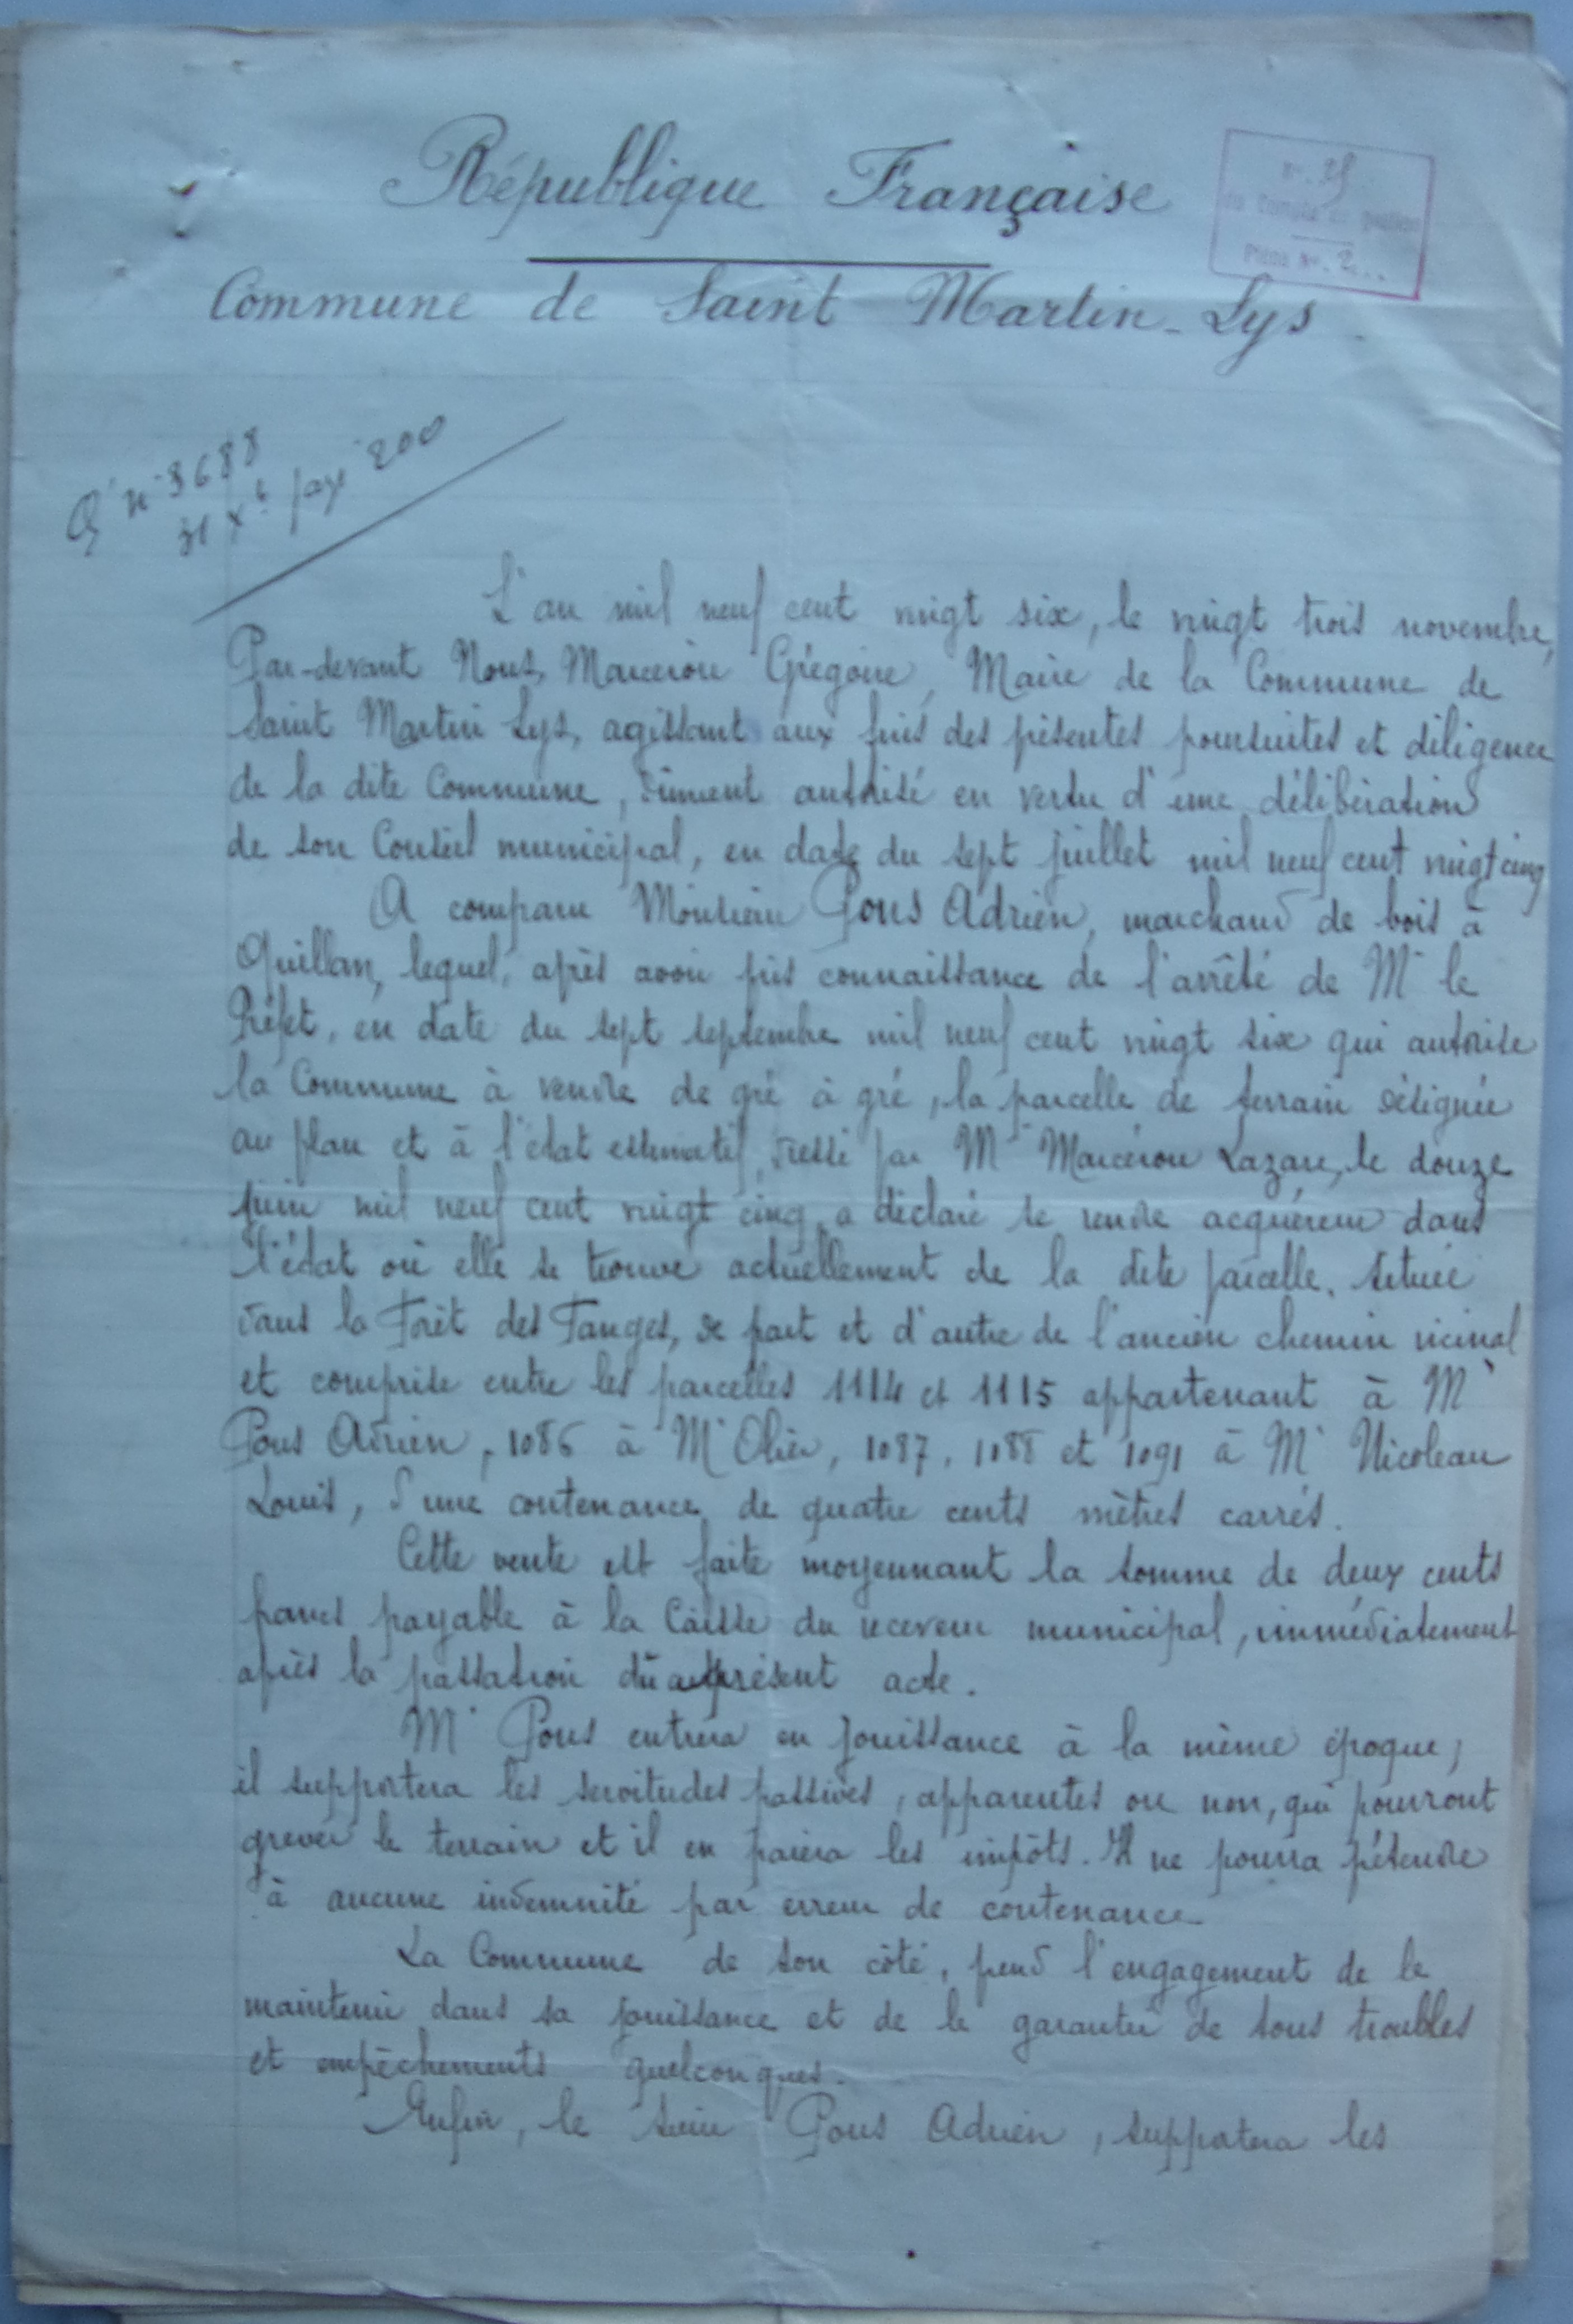 République Française
N°. 25
du Compte de gestion
Pièce N°. 2...
Commune de Saint Martin-Lys
Q N° 3688
31 Xbre payé 200
L'an mil neuf cent vingt six, le vingt trois novembre,
Par-devant Nous, Marcerou Grégoire, Maire de la Commune de
Saint Martin Lys, agissant aux fins des présentes poursuites et diligence
de la dite Commune, dûment autorisé en vertu d'une délibération
de son Conseil municipal, en date du sept juillet mil neuf cent vingt cinq
A comparu Monsieur Pons Adrien, marchand de bois à
Quillan, lequel, après avoir pris connaissance de l'arrêté de Mr le
Préfet, en date du sept septembre mil neuf cent vingt six qui autorise
la Commune à vendre de gré à gré, la parcelle de terrain désignée
au plan et à l'état estimatif, dressé par Mr Marcerou Lazare, le douze
juin mil neuf cent vingt cinq, a déclaré se rendre acquéreur dans
l'état où elle se trouve actuellement de la dite parcelle, située
dans la Forêt des Fanges, de part et d'autre de l'ancien chemin vicinal
et comprise entre les parcelles 1114 et 1115 appartenant à Mr
Pons Adrien, 1086 à Mr Olier, 1087, 1088 et 1091 à Mr Nicoleau
Louis, d'une contenance de quatre cents mètres carrés.
Cette vente est faite moyennant la somme de deux cents
francs payable à la Caisse du receveur municipal, immédiatement
après la passation du présent acte.
Mr Pons entrera en jouissance à la même époque,
il supportera les servitudes passives, apparentes ou non, qui pourront
grever le terrain et il en paiera les impôts. Il ne pourra prétendre
à aucune indemnité par erreur de contenance
La Commune de son côté, prend l'engagement de le
maintenir dans sa jouissance et de le garantir de tous troubles
et empêchements quelconques.
Enfin, le sieur Pons Adrien, supportera les